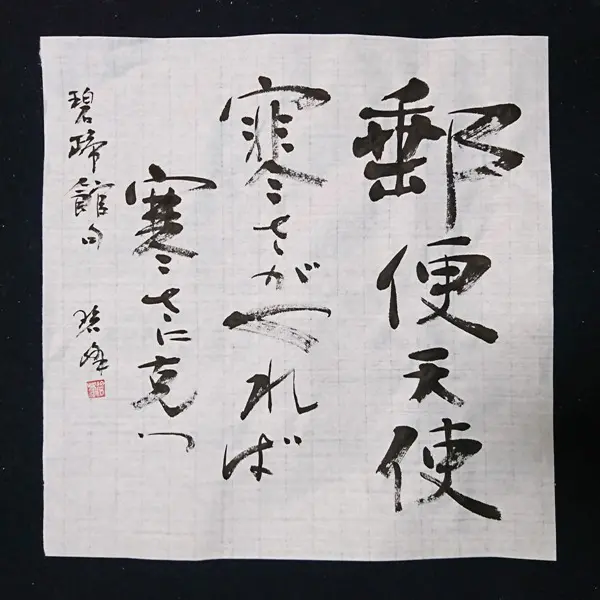 郵便天使
寒さがくれば
寒さに克つ
碧蹄館句